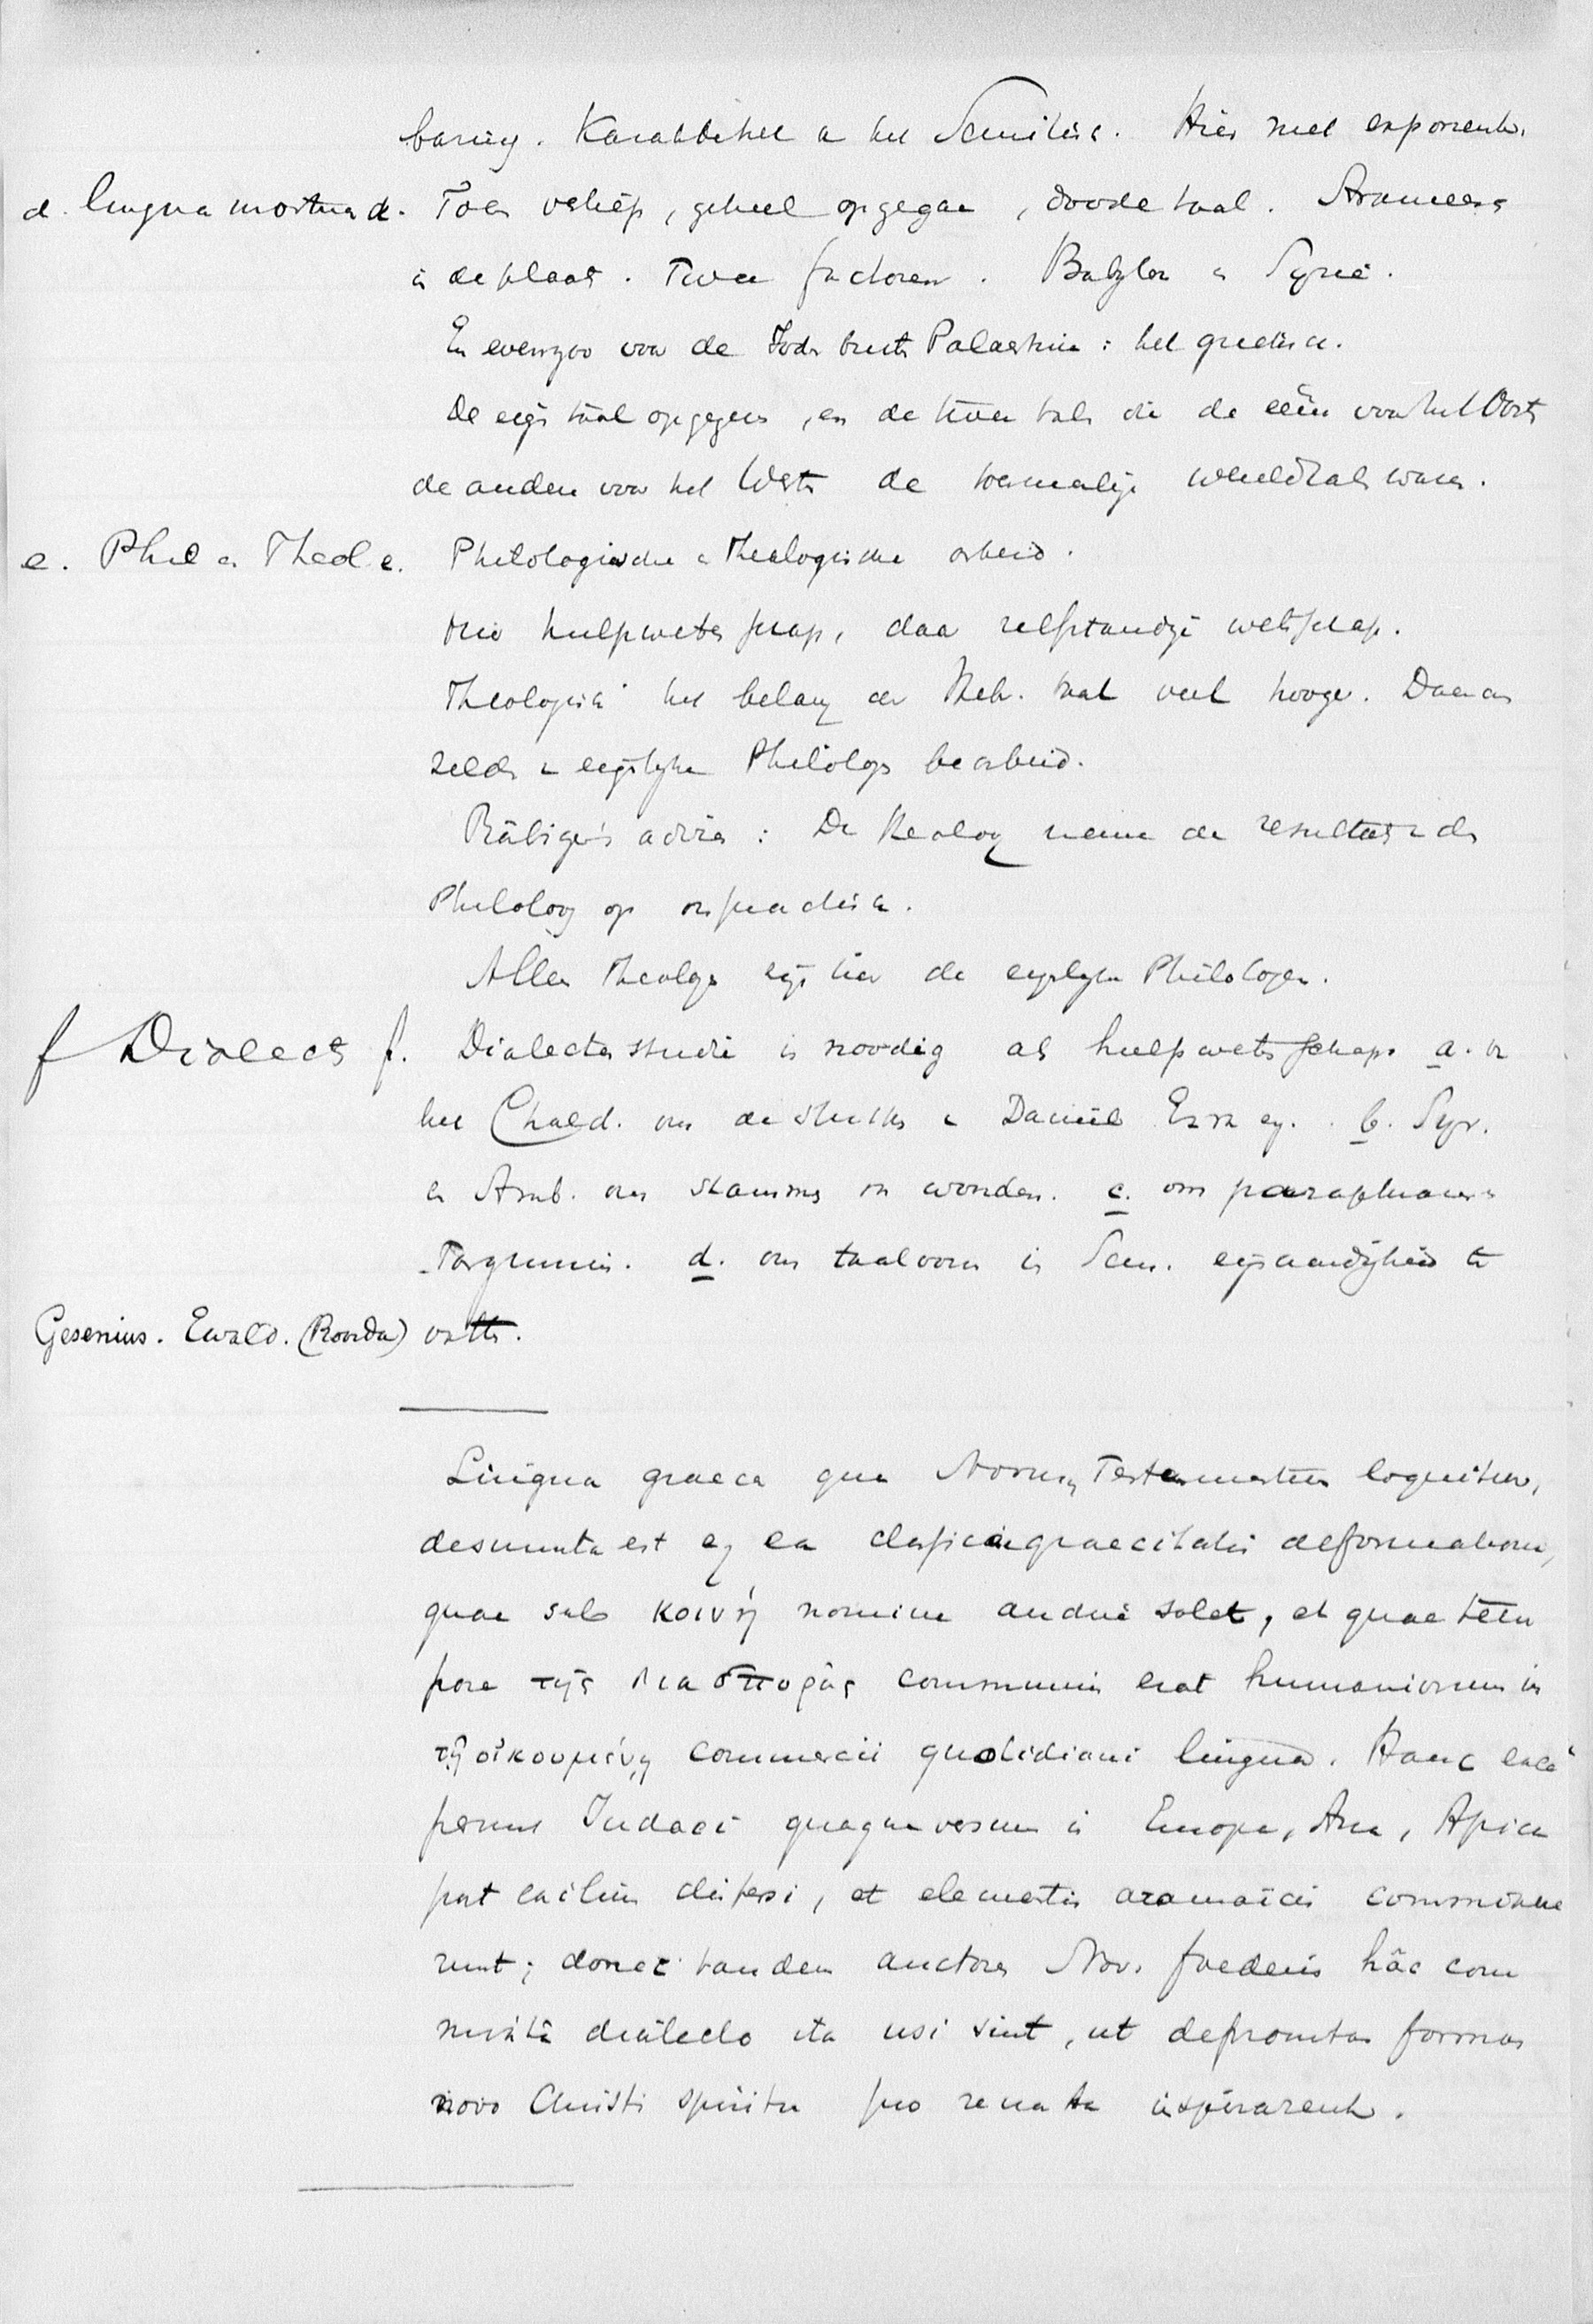 baring. Karakter het Semitisc. Hier niet exponent.
d. lingua mortua d. Toen verliep, geheel opgegaan, doode taal. Arameesc
in de plaats. Twee factoren. Babylon en Syrië.
En evenzoo voor de Jodn buiten Palaestina: het griekse.
De eign taal opgegeven, en de twee taln die de eéne voor het Oostn
de andere voor het Westn de toenmalige wereldtaln waren.
e. Phil en Theol e. Philologische en Theologische arbeid.
hulpwetenschap, daar zelfstandige wetschap.
Theologisch het belang der Hebr. taal veel hooger. Daarom
zeldn eigenlyke Philologn bearbeid.
Räbiger's advies: De theoloog neme de resultatn der
Philoloog op
Alleen Theologn zijn hier de eigenlyke Philologen.
f Dialect f. Dialecten studie is noodig als hulpwetenschap. a. v.
het Chald. om de stukkn in Daniël Ezra. b. Syr.
en Arab. om stammen en woorden. c. om paraphrasen
Targumim. d. om taalvorm in Sem. eigenaardigheid te
Gesenius. Ewald. (Roorda) vattn.
Lingua graeca qua Novum Testamentum loquitur,
desumta est ex ea classicae graecitatis deformatione,
quae sub κοινή nomine audire solet, et quae tem
pore τῆς διασπορᾶς communis erat humaniorum in
τῇ οἰκουμένῃ commercii quotidiani lingua. Hanc
Judaei quaquaversum in Europa, Asia, Africa
post exilium dispersi, et elementis aramaïcis commiscue
runt; donec tandem auctores Nov. foederis hâc com
mixtâ dialecto ita usi sint, ut depromtas formas
novo Christi spiritu pro re nata inspirarent.